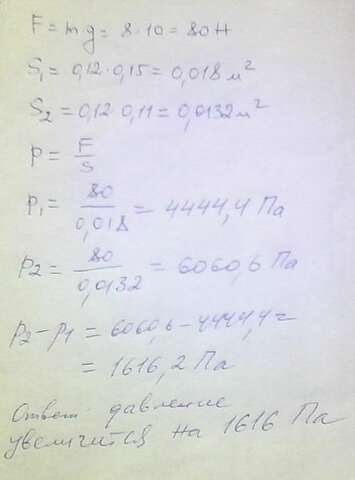 F = mg = 8·10 = 80Н
S₁ = 0,12·0,15 = 0,018 м²
S₂ = 0,12·0,11 = 0,0132 м²
P = F/S
P₁ = 80/0,018 = 4444,4 Па
P₂ = 80/0,0132 = 6060,6 Па
P₂ - P₁ = 6060,6 - 4444,4 =
= 1616,2 Па
Ответ давление
увеличится на 1616 Па